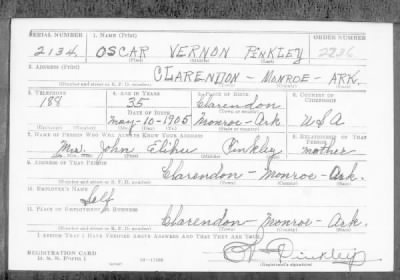 SERIAL NUMBER 1. NAME (Print) ORDER NUMBER
2134 OSCAR VERNON PINKLEY 2236
(First) (Middle) (Last)
2. ADDRESS (Print)
CLARENDON - MONROE - ARK.
(Number and street or R. F. D. number) (Town) (County) (State)
3. TELEPHONE 4. AGE IN YEARS 5. PLACE OF BIRTH 6. COUNTRY OF CITIZENSHIP
188 35 Clarendon
DATE OF BIRTH (Town or county)
May-20-1905 Monroe-Ark. USA
(Exchange) (Number) (Mo.) (Day) (Yr.) (State or country)
7. NAME OF PERSON WHO WILL ALWAYS KNOW YOUR ADDRESS 8. RELATIONSHIP OF THAT PERSON
Mrs. John Elihu Pinkley mother
(Mr., Mrs., Miss) (First) (Middle) (Last)
9. ADDRESS OF THAT PERSON
Clarendon - Monroe - Ark.
(Number and street or R. F. D. number) (Town) (County) (State)
10. EMPLOYER'S NAME
Self
11. PLACE OF EMPLOYMENT OR BUSINESS
Clarendon - Monroe - Ark.
(Number and street or R. F. D. number) (Town) (County) (State)
I AFFIRM THAT I HAVE VERIFIED ABOVE ANSWERS AND THAT THEY ARE TRUE.
REGISTRATION CARD
D. S. S. Form 1
Pinkley
(Registrant's signature)